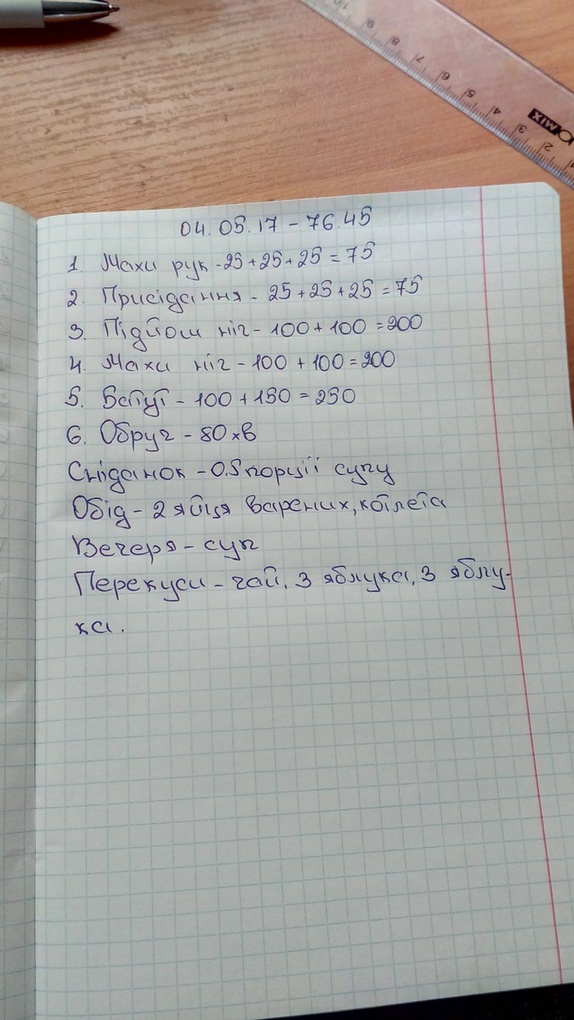 04.05.17 - 76.45
1. Махи рук - 25 + 25 + 25 = 75
2. Присідання - 25 + 25 + 25 = 75
3. Підйом ніг - 100 + 100 = 200
4. Махи ніг - 100 + 100 = 200
5. Батут - 100 + 150 = 250
6. Обруч - 80 хв
Сніданок - 0.5 порції супу
Обід - 2 яйця варених, котлета
Вечеря - суп
Перекуси - чай, 3 яблука, 3 яблу-
ка.
10 9 8 7 6 5 4 3 2 1
OMIX